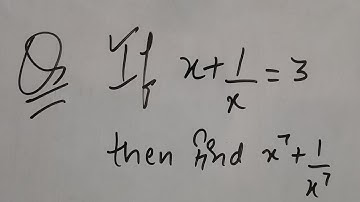 Q If x + 1/x = 3
then find x⁷ + 1/x⁷